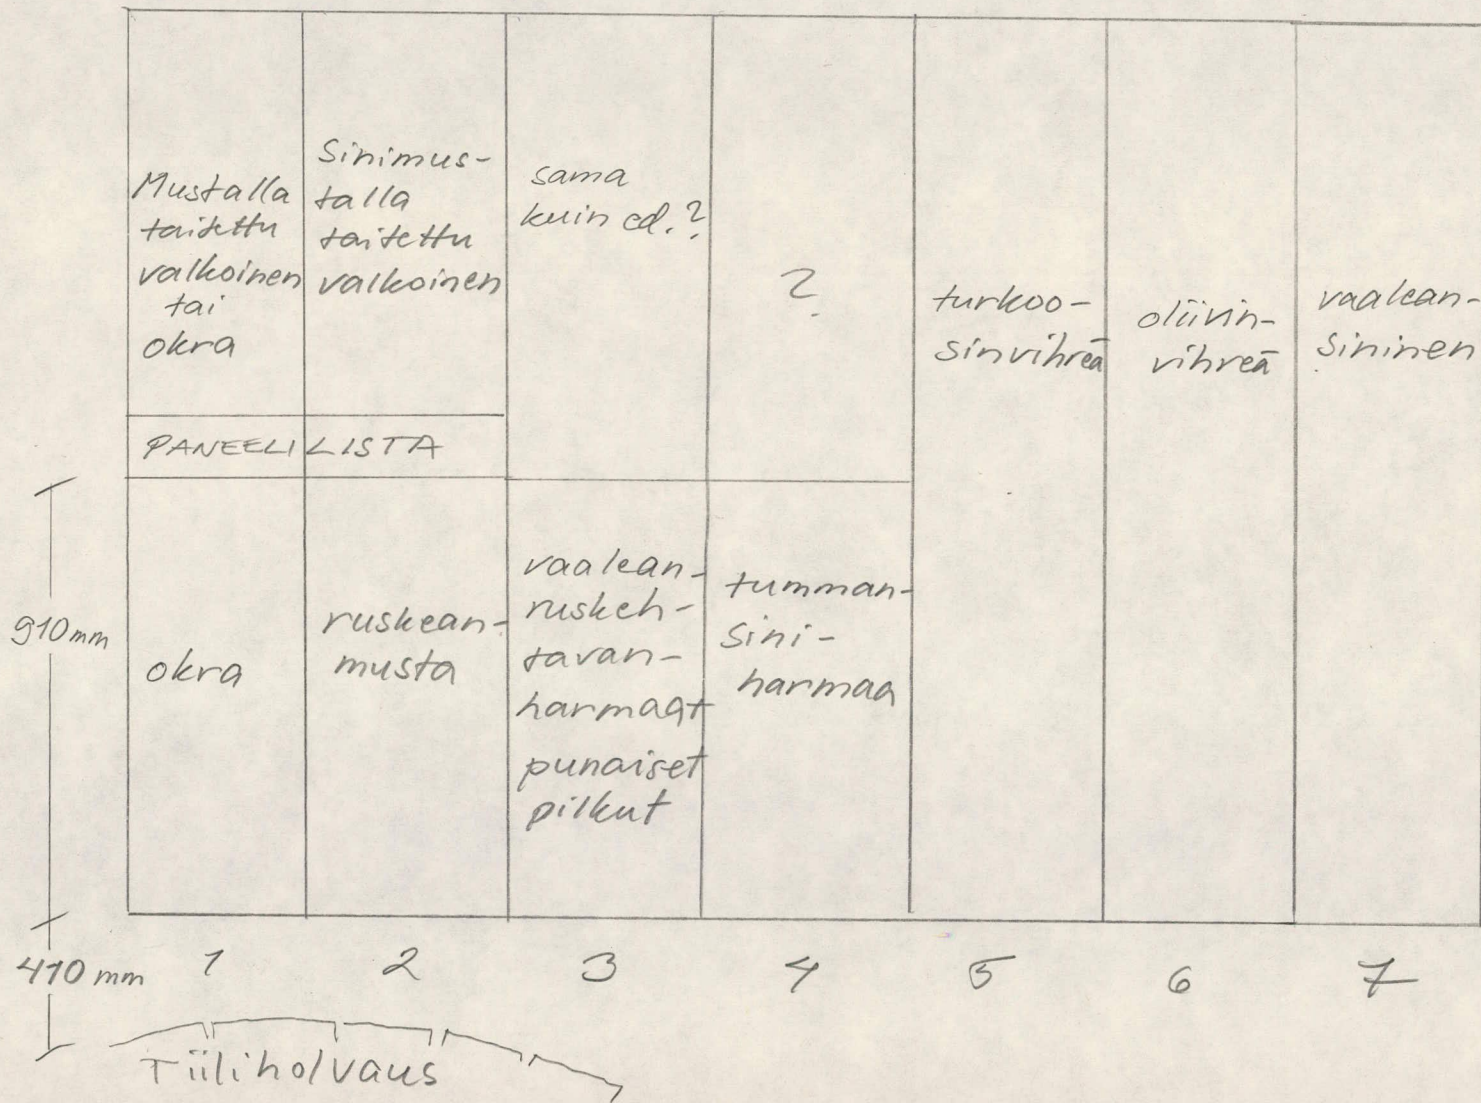 Mustalla
taitettu
valkoinen
tai
okra
Sinimus-
talla
taitettu
valkoinen
sama
kuin ed.?
?
turkoo-
sinvihreä
oliivin-
vihreä
vaalean-
sininen
PANEELILISTA
910mm
okra
ruskean-
musta
vaalean-
ruskeh-
tavan-
harmaat
punaiset
pilkut
tumman-
sini-
harmaa
410 mm
1 2 3 4 5 6 7
Tiiliholvaus